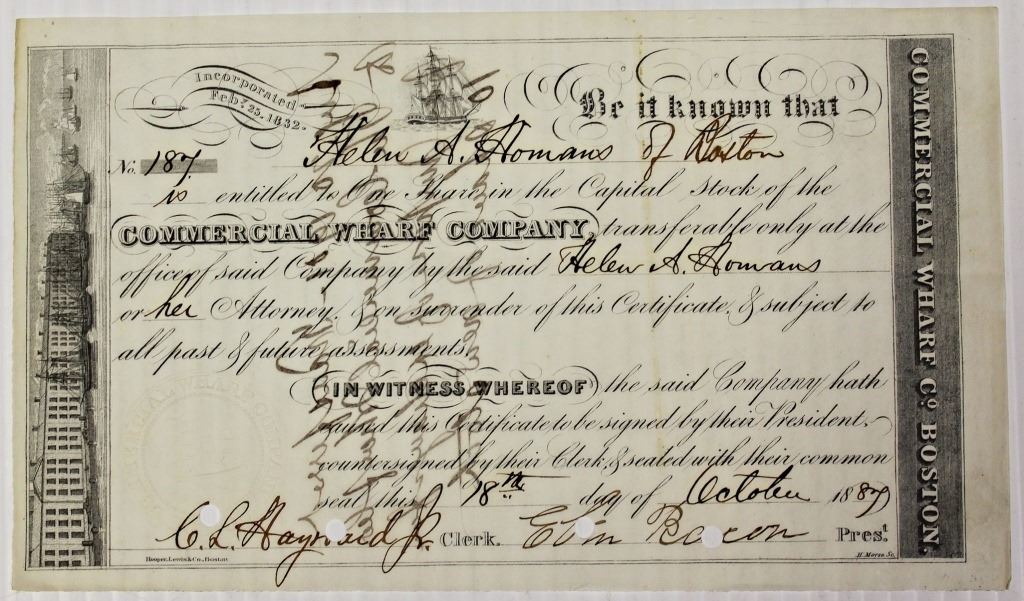 Incorporated
Feb.y 25. 1832.
Be it known that
No. 187
Helen A. Homans of Boston
is entitled to One Share in the Capital Stock of the
COMMERCIAL WHARF COMPANY, transferable only at the
office of said Company by the said Helen A. Homans
or her Attorney, & on surrender of this Certificate, & subject to
all past & future assessments.
IN WITNESS WHEREOF the said Company hath
caused this Certificate to be signed by their President,
countersigned by their Clerk, & sealed with their common
seal this 18th day of October 1887
C. L. Hayward Jr. Clerk. Eben Bacon Prest.
Hooper, Lewis & Co., Boston
H. Morse Sc.
COMMERCIAL WHARF Co. BOSTON.